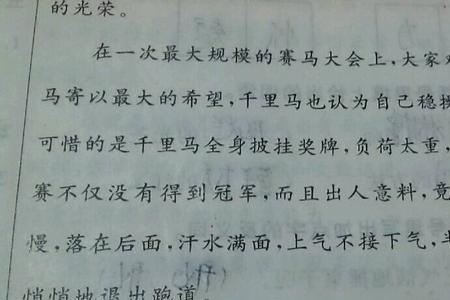 的光荣。
在一次最大规模的赛马大会上,大家
马寄以最大的希望,千里马也认为自己稳
可惜的是千里马全身披挂奖牌,负荷太重,
赛不仅没有得到冠军,而且出人意料,竟
慢,落在后面,汗水满面,上气不接下气,
悄悄地退出跑道。